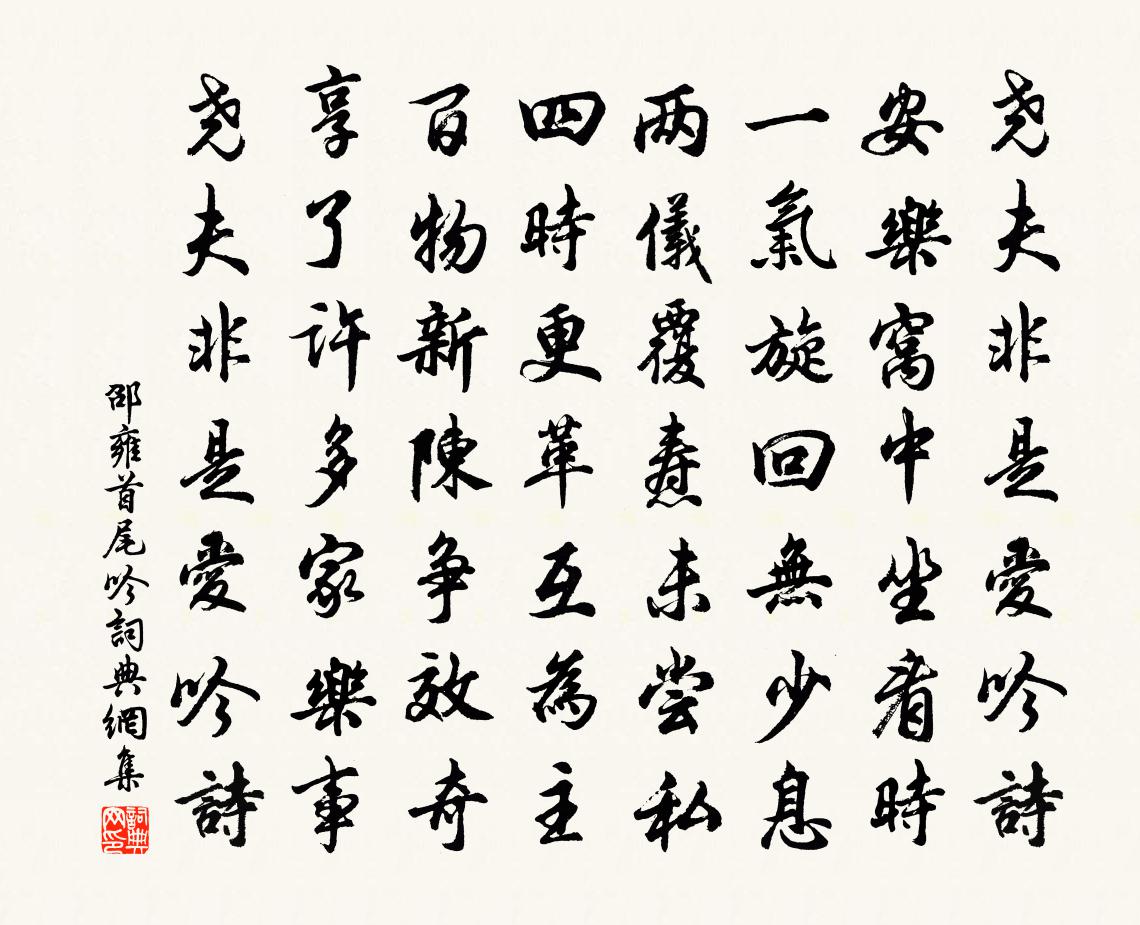 尧夫非是愛吟詩
安樂窩中坐看時
一氣旋回無少息
两儀覆燾未尝私
四時更革互為主
百物新陳争效奇
享了許多家樂事
尧夫非是愛吟詩
邵雍首尾吟詞典網集
詞典网印